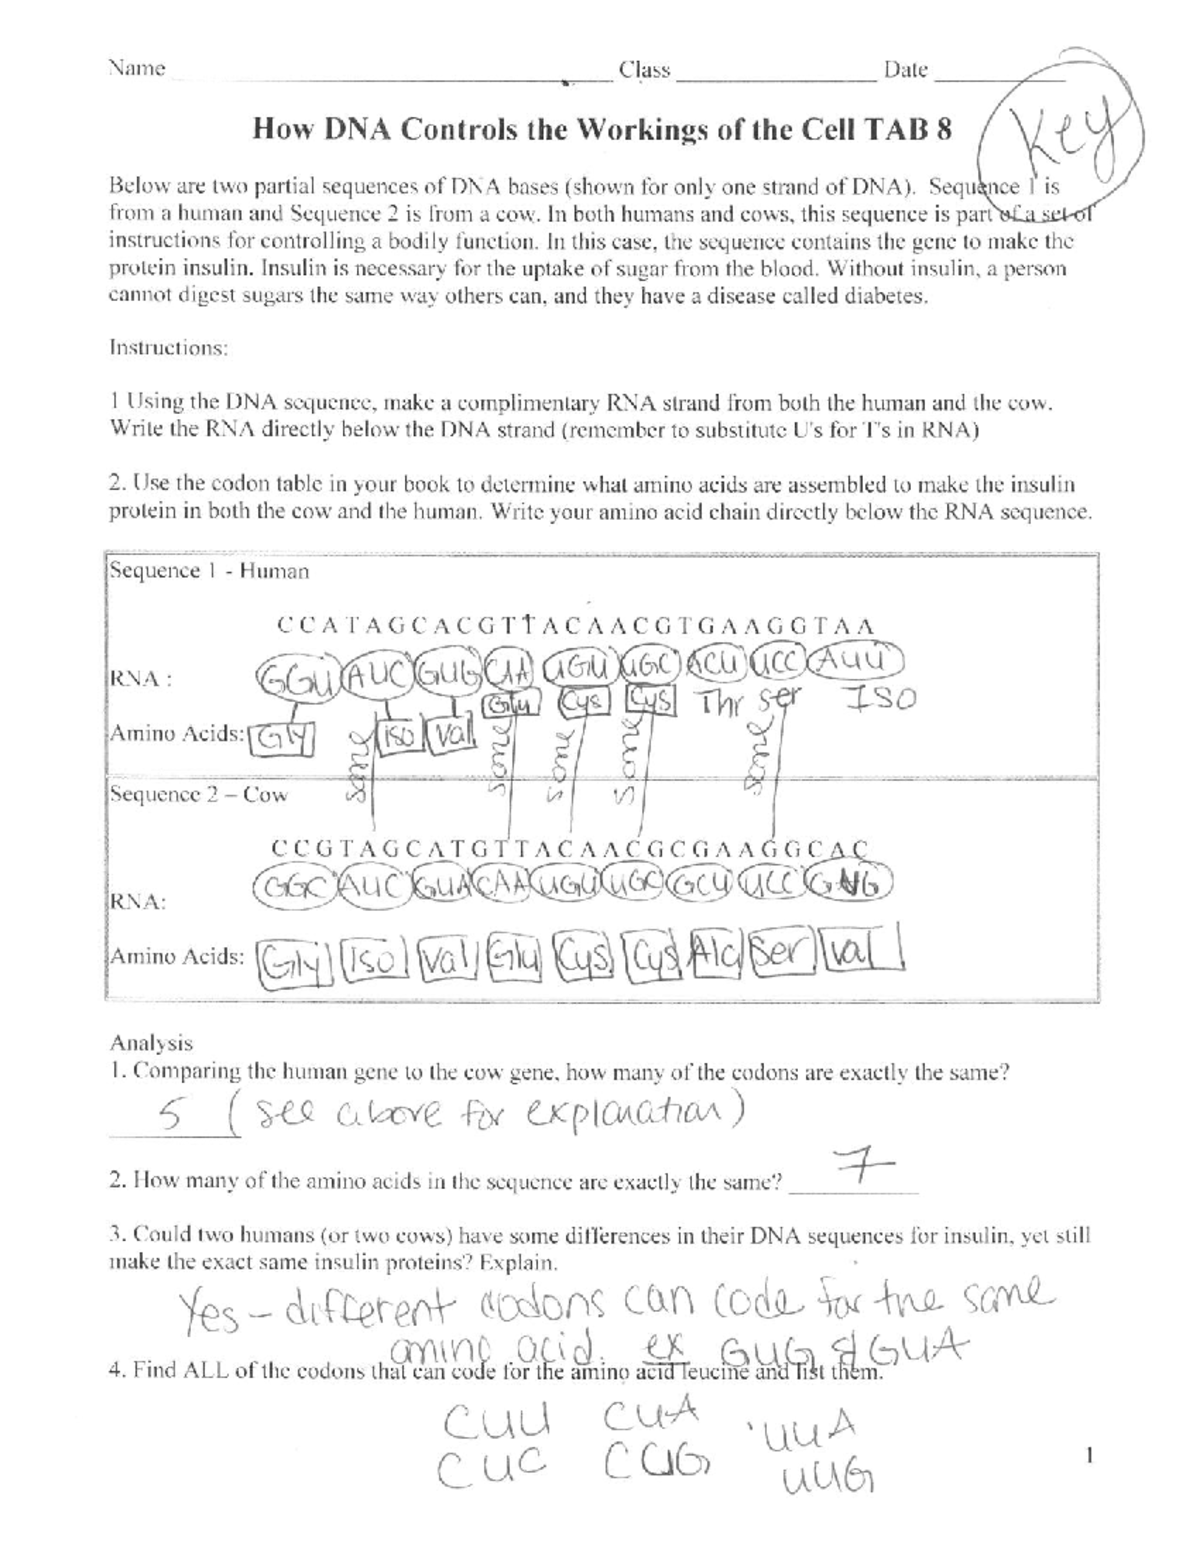 Name Class Date
Key
How DNA Controls the Workings of the Cell TAB 8
Below are two partial sequences of DNA bases (shown for only one strand of DNA). Sequence 1 is
from a human and Sequence 2 is from a cow. In both humans and cows, this sequence is part of a set of
instructions for controlling a bodily function. In this case, the sequence contains the gene to make the
protein insulin. Insulin is necessary for the uptake of sugar from the blood. Without insulin, a person
cannot digest sugars the same way others can, and they have a disease called diabetes.
Instructions:
1 Using the DNA sequence, make a complimentary RNA strand from both the human and the cow.
Write the RNA directly below the DNA strand (remember to substitute U's for T's in RNA)
2. Use the codon table in your book to determine what amino acids are assembled to make the insulin
protein in both the cow and the human. Write your amino acid chain directly below the RNA sequence.
Sequence 1 - Human
C C A T A G C A C G T T A C A A C G T G A A G G T A A
RNA : GGU AUC GUG CAA UGU UGC ACU UCC AUU
Glu Cys Cys Thr ser ISO
Amino Acids: Gly iso Val
same same same same same
Sequence 2 – Cow
C C G T A G C A T G T T A C A A C G C G A A G G C A C
RNA: GGC AUC GUA CAA UGU UGC GCU UCC GUG
Amino Acids: Gly iso Val Glu Cys Cys Ala Ser val
Analysis
1. Comparing the human gene to the cow gene, how many of the codons are exactly the same?
5 (see above for explanation)
2. How many of the amino acids in the sequence are exactly the same? 7
3. Could two humans (or two cows) have some differences in their DNA sequences for insulin, yet still
make the exact same insulin proteins? Explain.
Yes - different codons can code for the same
amino acid. ex GUG & GUA
4. Find ALL of the codons that can code for the amino acid leucine and list them.
CUU CUA UUA
CUC CUG UUG
1